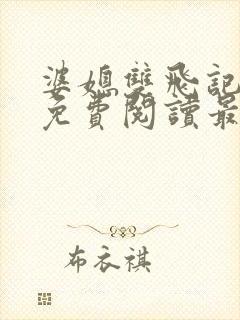 婆媳雙飛記
免費閱讀最
布衣祺